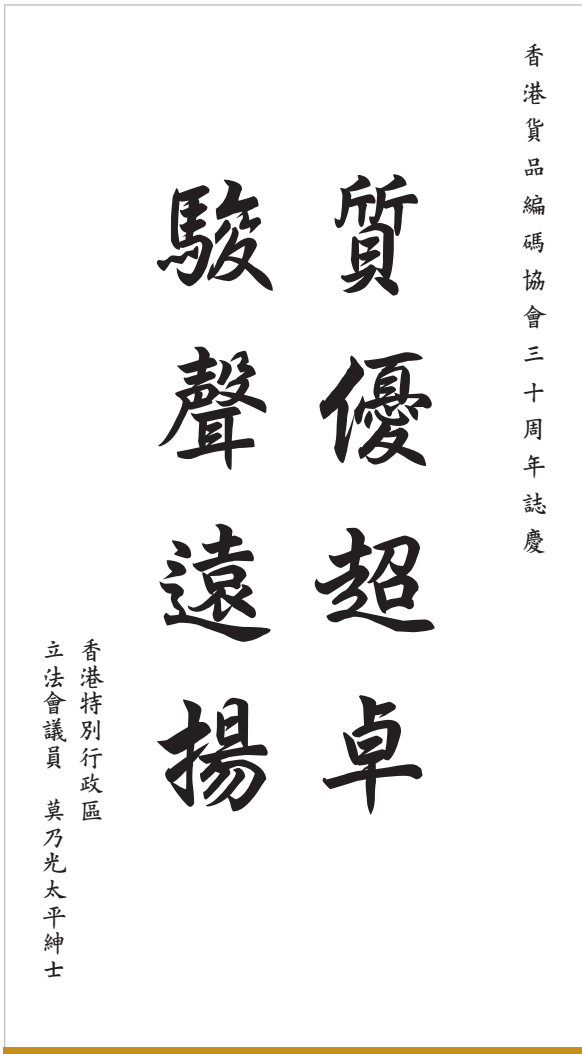 香港貨品編碼協會三十周年誌慶
質優超卓
駿聲遠揚
香港特別行政區
立法會議員　莫乃光太平紳士